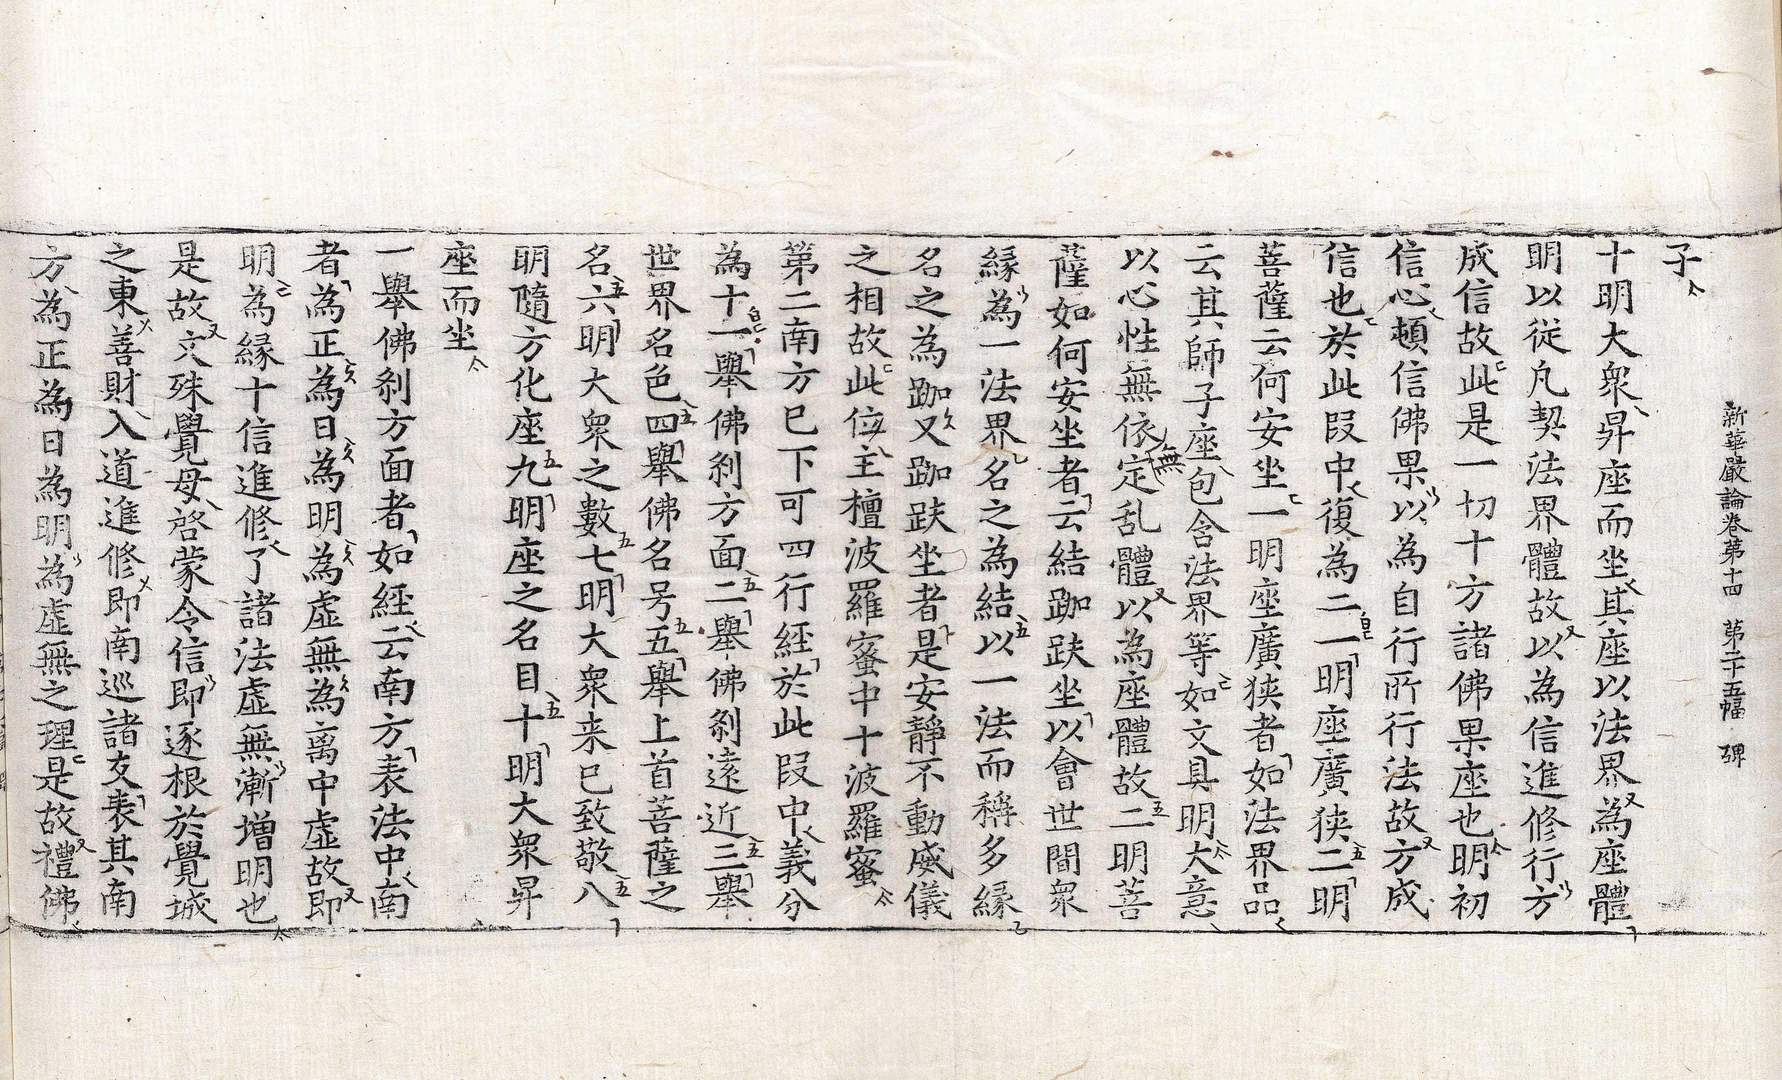 新華嚴論卷第十四 第二十五幅 碑
子
十明大衆昇座而坐其座以法界為座體
明以從凡契法界體故以為信進修行方
成信故此是一切十方諸佛果座也明初
信心頓信佛果以為自行所行行法故方成
信也於此段中復為二一明座廣狹二明
菩薩云何安坐一明座廣狹者如法界品
云其師子座包含法界等如文具明大意
以心性無依無定乱體以為座體故二明菩
薩如何安坐者云結跏趺坐以會世間衆
緣為一法界名之為結以一法而稱多緣
名之為跏又跏趺坐者是安靜不動威儀
之相故此位主檀波羅蜜中十波羅蜜
第二南方已下可四行經於此段中義分
為十一舉佛刹方面二舉佛刹遠近三舉
世界名色四舉佛名号五舉上首菩薩之
名六明大衆之數七明大衆来已致敬八
明隨方化座九明座之名目十明大衆昇
座而坐
一舉佛刹方面者如經云南方表法中南
者為正為日為明為虛無為离中虛故即
明為緣十信進修了諸法虛無漸增明也
是故文殊覺母啓蒙令信即逐根於覺城
之東善財入道進修即南巡諸友表其南
方為正為日為明為虛無之理是故禮佛